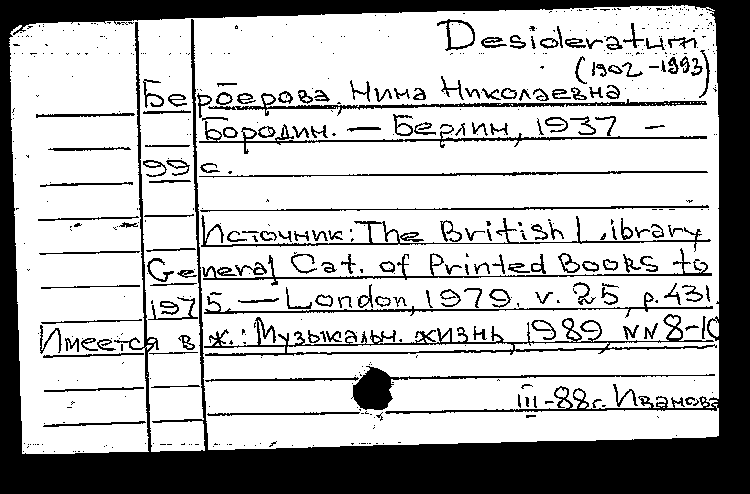 Desideratum
(1902-1993)
Берберова, Нина Николаевна
Бородин. — Берлин, 1937 —
99 с.
Источник: The British Library
General Cat. of Printed Books to
1975. — London, 1979. v. 25, p. 431.
Имеется в ж.: Музыкальн. жизнь, 1989, NN 8-10
III-88г. Иванова